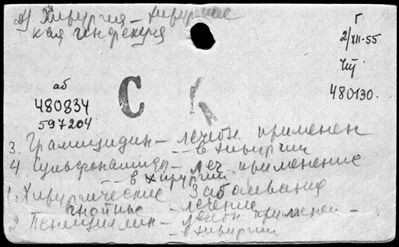 А) Хирургия – хирургичес
кая инфекция
Г
2/XII-55
480130.
аб
480834
597204
С
К
3. Грамицидин – лечебн. применен
– в хирургии
4. Сульфонамиды – леч. применение
– в хирургии
1. Хирургические заболевания
гнойные – лечение
2. Пенициллин – лечебн. применен –
– в хирургии